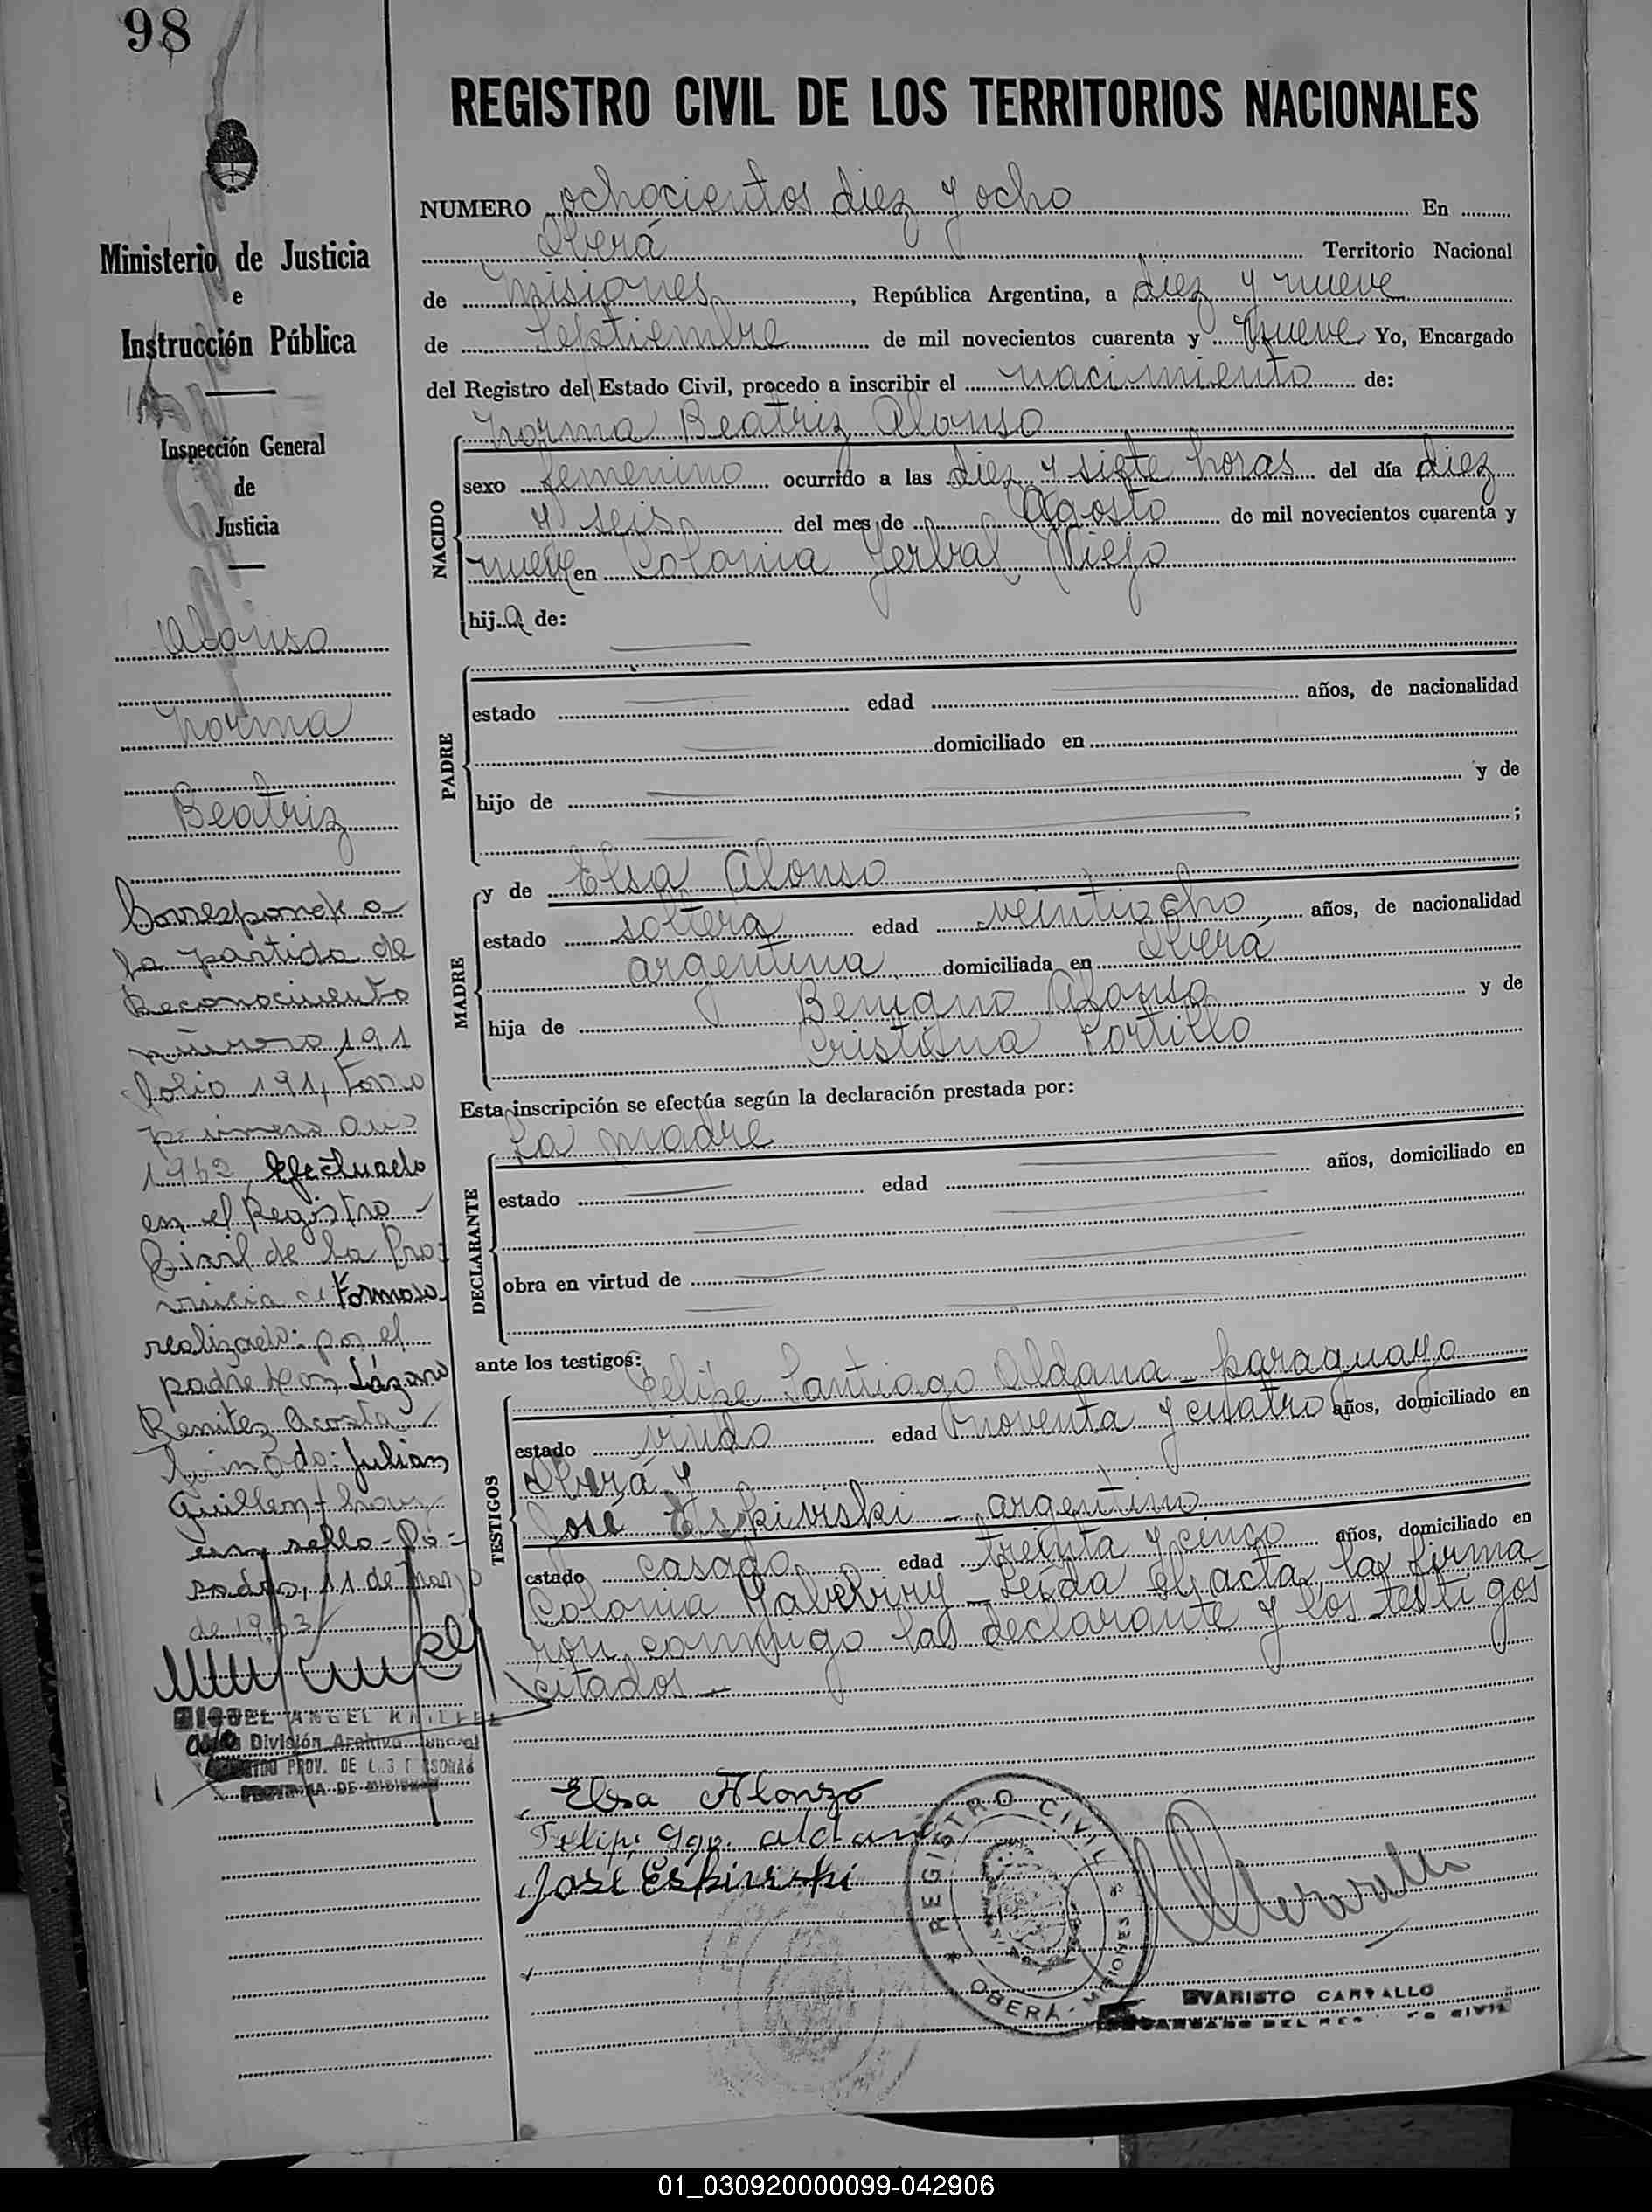 98
REGISTRO CIVIL DE LOS TERRITORIOS NACIONALES
Ministerio de Justicia
e
Instrucción Pública
Inspección General
de
Justicia
Alonso
Norma
Beatriz
Corresponde a
la partida de
Reconocimiento
número 191
folio 191, Tomo
primero año
1962 Efectuado
en el Registro
Civil de la Pro-
vincia de Formosa
realizado: por el
padre don Lázaro
Benitez Acosta
firmado: Julian
Guillen
sello - Po-
sadas, 11 de
de 1963
MIGUEL ANGEL
División Archivo General
PROV. DE LAS PERSONAS
PROVINCIA DE MISIONES
NUMERO ochocientos diez y ocho En
Oberá Territorio Nacional
de Misiones, República Argentina, a diez y nueve
de Septiembre de mil novecientos cuarenta y nueve Yo, Encargado
del Registro del Estado Civil, procedo a inscribir el nacimiento de:
Norma Beatriz Alonso
NACIDO
sexo femenino ocurrido a las diez y siete horas del día diez
y seis del mes de Agosto de mil novecientos cuarenta y
nueve en Colonia Yerbal Viejo
hija de:
PADRE
estado edad años, de nacionalidad
domiciliado en
hijo de y de
;
MADRE
y de Elsa Alonso
estado soltera edad veintiocho años, de nacionalidad
argentina domiciliada en Oberá
hija de Benigno Alonso y de
Cristina Portillo
Esta inscripción se efectúa según la declaración prestada por:
La madre
DECLARANTE
estado edad años, domiciliado en
obra en virtud de
ante los testigos:
TESTIGOS
Felipe Santiago Aldana - paraguayo
estado viudo edad noventa y cuatro años, domiciliado en
Oberá y
José Eskiviski - argentino
estado casado edad treinta y cinco años, domiciliado en
Colonia Yabebiry - Leída el acta, la firma-
ron conmigo la declarante y los testigos
citados -
Elsa Alonzo
Felipe Sgo. aldana
José Eskivski
REGISTRO CIVIL
OBERA - MISIONES
EVARISTO CARVALLO
ENCARGADO DEL REGISTRO CIVIL
01_030920000099-042906